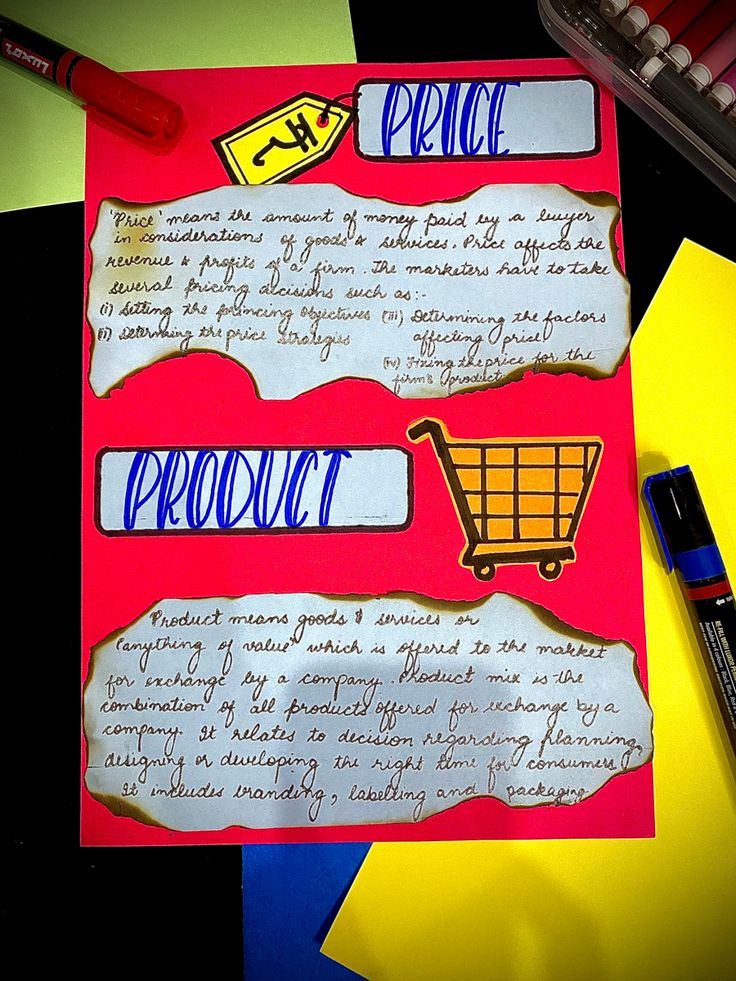 LUXOR
PRICE
₹
'Price' means the amount of money paid by a buyer
in considerations of goods & services. Price affects the
revenue & profits of a firm. The marketers have to take
several pricing decisions such as:-
(i) Setting the princing objectives
(ii) Determing the price strategies
(iii) Determining the factors
affecting price
(iv) Fixing the price for the
firm's product
PRODUCT
Product means goods & services or
"anything of value" which is offered to the market
for exchange by a company. Product mix is the
combination of all products offered for exchange by a
company. It relates to decision regarding planning,
designing or developing the right time for consumers
It includes branding, labelling and packaging